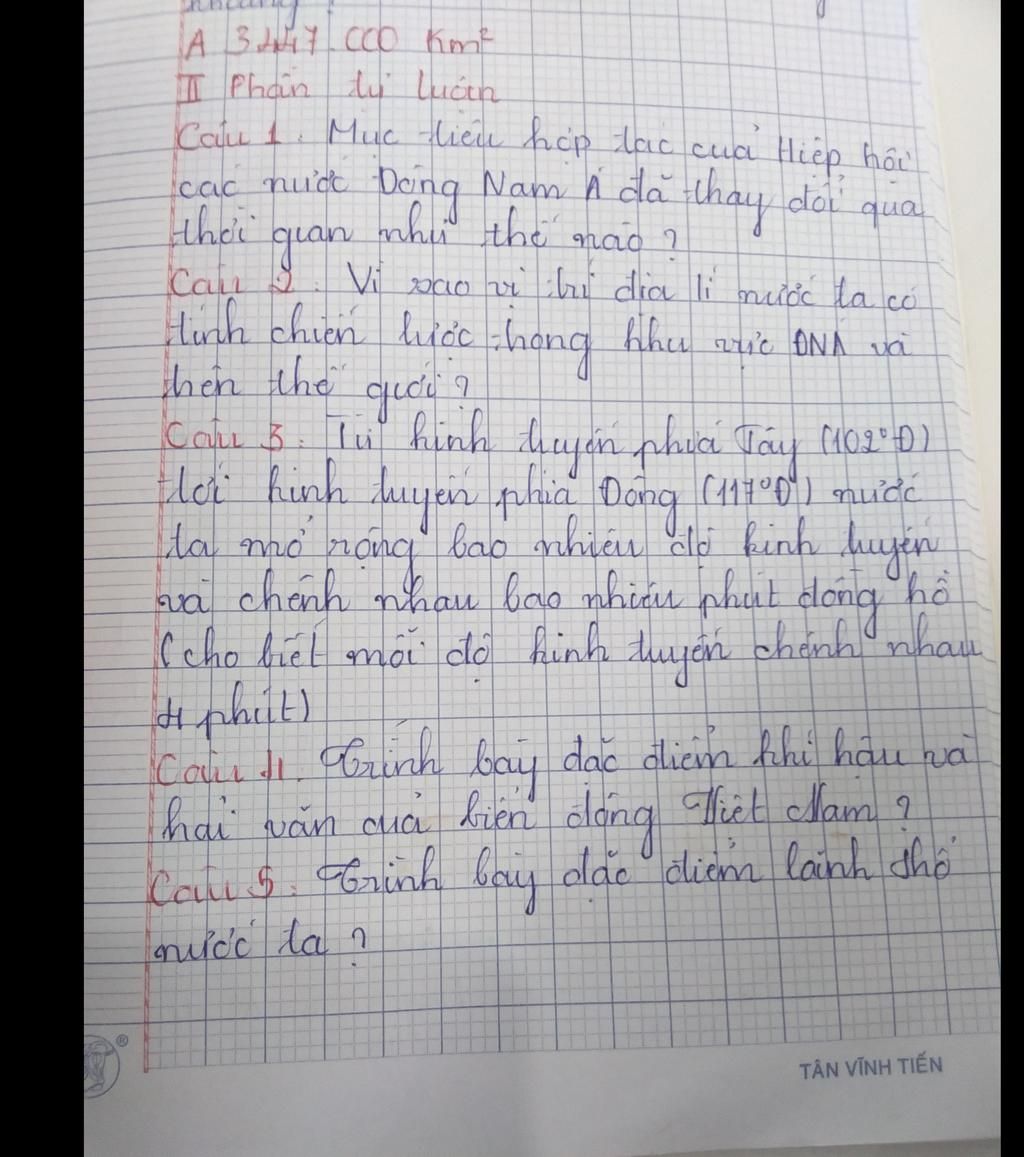 A 3447 000 Km²
II Phần tự luận
Câu 1. Mục tiêu hợp tác của Hiệp hội
các nước Đông Nam Á đã thay đổi qua
thời gian như thế nào?
Câu 2. Vì sao vị trí địa lí nước ta có
tính chiến lược trong khu vực ĐNA và
trên thế giới?
Câu 3. Từ kinh tuyến phía Tây (102°Đ)
tới kinh tuyến phía Đông (117°Đ) nước
ta mở rộng bao nhiêu độ kinh tuyến
và chênh nhau bao nhiêu phút đồng hồ
(cho biết mỗi độ kinh tuyến chênh nhau
4 phút)
Câu 4. Trình bày đặc điểm khí hậu và
hải văn của biển đông Việt Nam?
Câu 5. Trình bày đặc điểm lãnh thổ
nước ta?
TÂN VĨNH TIẾN